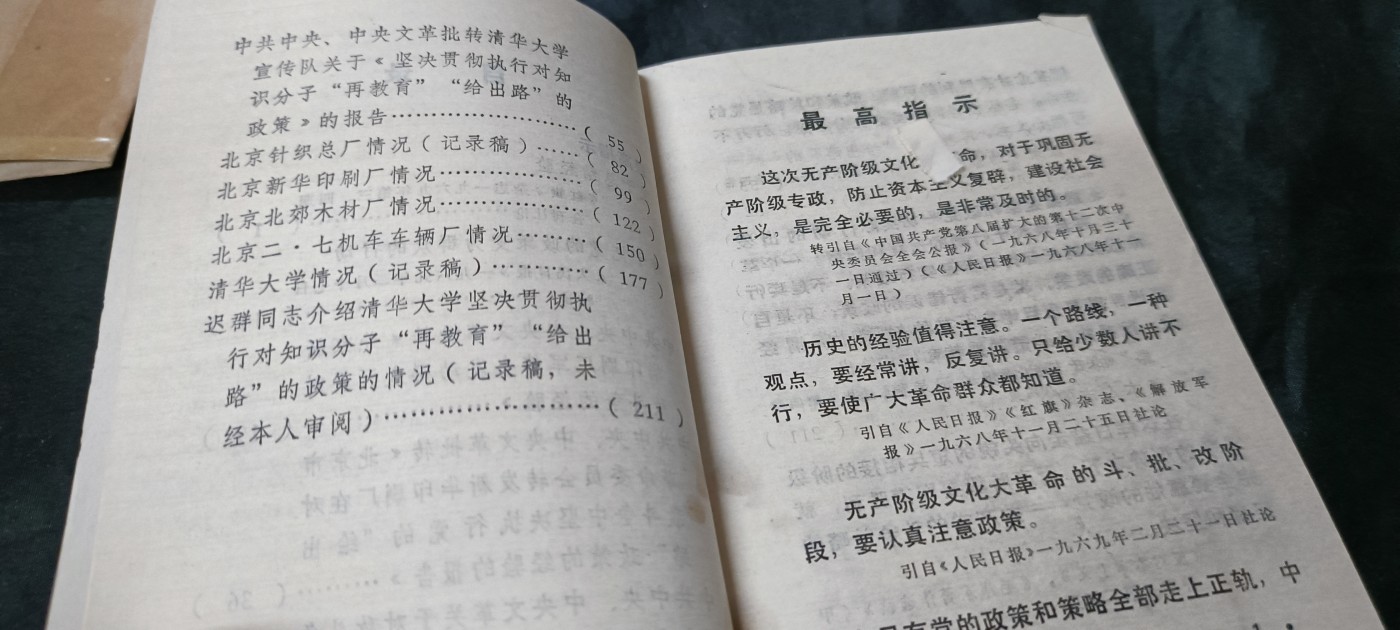 中共中央、中央文革批转清华大学
宣传队关于《坚决贯彻执行对知
识分子“再教育”“给出路”的
政策》的报告……………………( 55 )
北京针织总厂情况(记录稿)……( 82 )
北京新华印刷厂情况………………( 99 )
北京北郊木材厂情况………………( 122 )
北京二·七机车车辆厂情况………( 150 )
清华大学情况(记录稿)…………( 177 )
迟群同志介绍清华大学坚决贯彻执
行对知识分子“再教育”“给出
路”的政策的情况(记录稿,未
经本人审阅)……………………( 211 )
最高指示
这次无产阶级文化 命,对于巩固无
产阶级专政,防止资本主义复辟,建设社会
主义,是完全必要的,是非常及时的。
转引自《中国共产党第八届扩大的第十二次中
央委员会全会公报》(一九六八年十月三十
一日通过)(《人民日报》一九六八年十一
月一日)
历史的经验值得注意。一个路线,一种
观点,要经常讲,反复讲。只给少数人讲不
行,要使广大革命群众都知道。
引自《人民日报》《红旗》杂志、《解放军
报》一九六八年十一月二十五日社论
无产阶级文化大革命的斗、批、改阶
段,要认真注意政策。
引自《人民日报》一九六九年二月二十一日社论
有党的政策和策略全部走上正轨,中